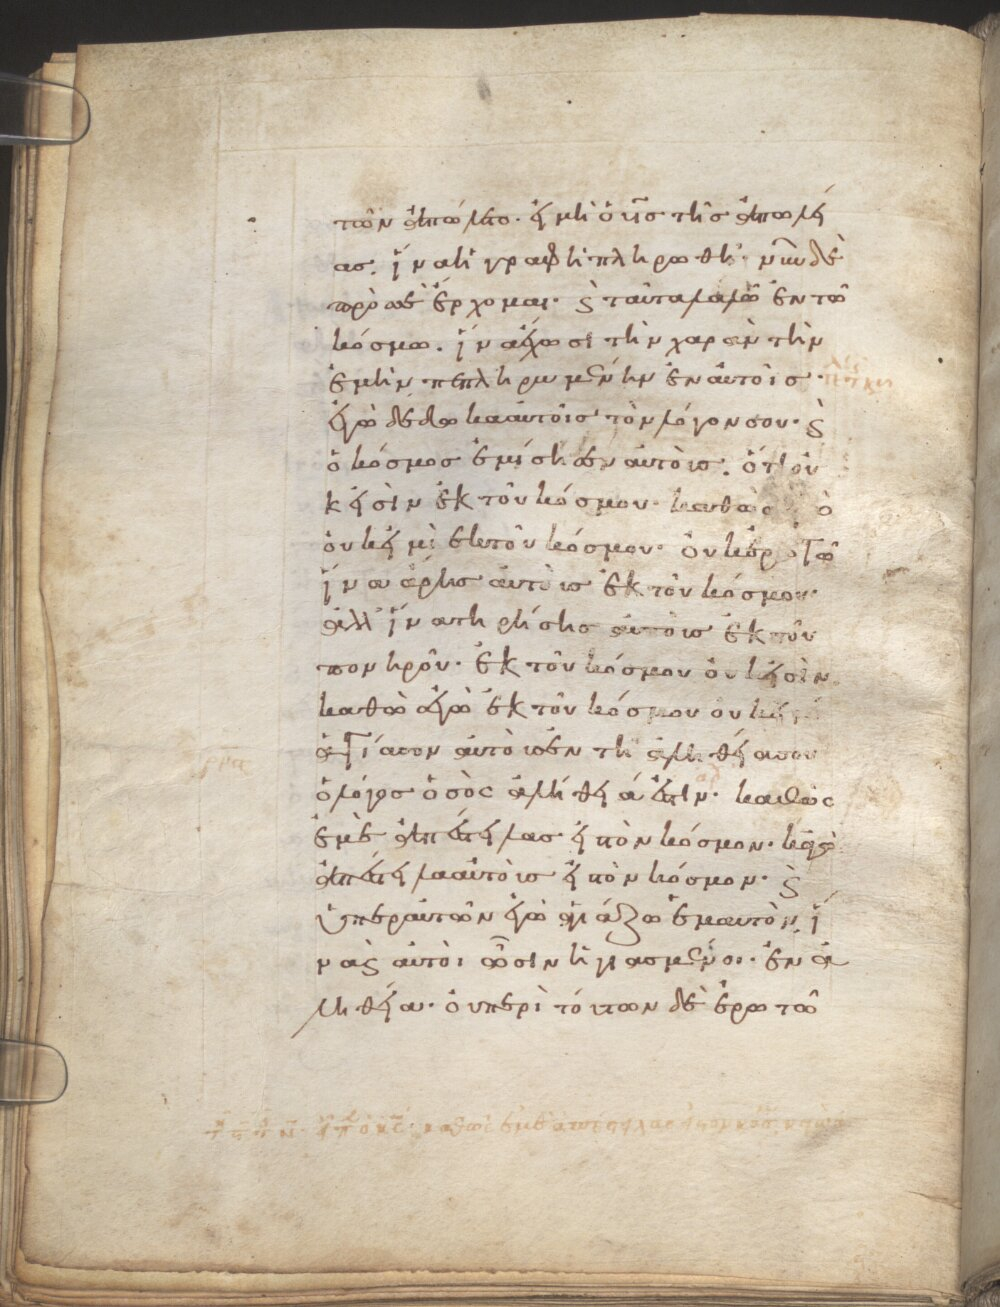 τῶν ἀπώλετο. εἰ μὴ ὁ υἱς τῆς ἀπωλεί
ας. ἵνα ἡ γραφὴ πληρωθῆ. νῦν δὲ
πρὸς σὲ ἔρχομαι. ϗ ταῦτα λαλῶ ἐν τῶ
κόσμω. ἵνα ἔχωσι τὴν χαρὰν τὴν
ἐμὴν πεπληρωμένην ἐν αὐτοῖς.
ἐγὼ δέδωκα αὐτοῖς τὸν λόγον σου. ϗ
ὁ κόσμος ἐμίσησεν αὐτοὺς. ὅτι οὐ
κ εἰσὶν ἐκ τοῦ κόσμου. καθὼς
οὐκ εἰμὶ ἐκ τοῦ κόσμου. οὐκ ἐρωτῶ
ἵνα ἄρης αὐτοὺς ἐκ τοῦ κόσμου.
ἀλλ' ἵνα τηρήσης αὐτοὺς ἐκ τοῦ
πονηροῦ. ἐκ τοῦ κόσμου οὐκ εἰσὶν
καθὼ ἐγὼ ἐκ τοῦ κόσμου οὐκ εἰμὶ
ἁγίασον αὐτοὺς ἐν τῆ ἀληθεία σου
ὁ λόγος ὁ σὸς ἀλήθειά ἐστιν. καθὼς
ἐμὲ ἀπέστειλας εἰς τὸν κόσμον. κἀγὼ
ἀπέστειλα αὐτοὺς εἰς τὸν κόσμον. ϗ
ὑπὲρ αὐτῶν ἐγὼ ἁγιάζω ἐμαυτὸν ἵ
να ϗ αὐτοὶ ὦσιν ἡγιασμένοι. ἐν ἀ
ληθεία. οὐ περὶ τούτων δὲ ἐρωτῶ
καθὼς ἐμὲ ἀπέστειλας